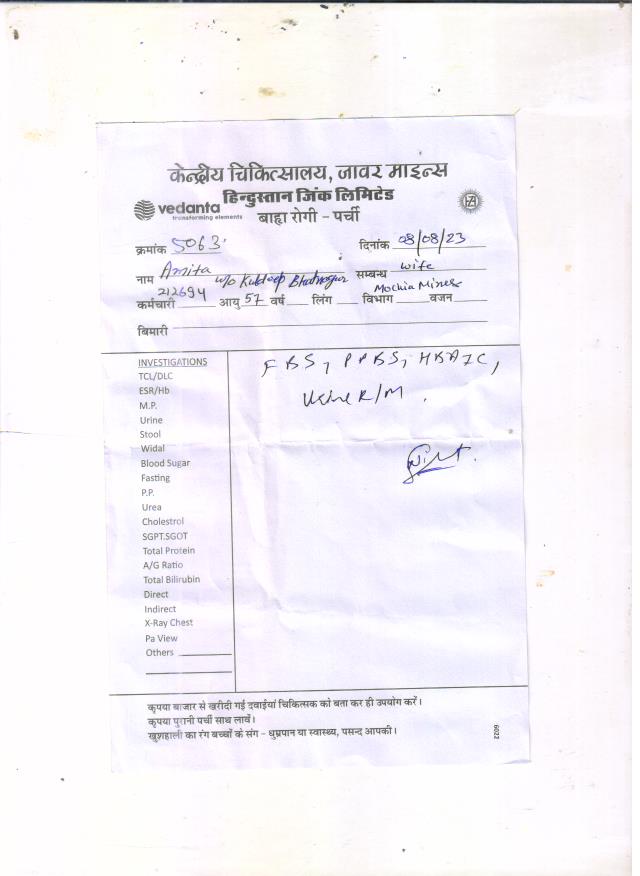 केन्द्रीय चिकित्सालय, जावर माइन्स
हिन्दुस्तान जिंक लिमिटेड
vedanta
transforming elements
बाह्य रोगी - पर्ची
क्रमांक 5063 दिनांक 08/08/23
नाम Amita w/o Kuldeep Bhatnagar सम्बन्ध wife
212694 Mochia Mines
कर्मचारी आयु 57 वर्ष लिंग विभाग वजन
बिमारी
INVESTIGATIONS
TCL/DLC
ESR/Hb
M.P.
Urine
Stool
Widal
Blood Sugar
Fasting
P.P.
Urea
Cholestrol
SGPT.SGOT
Total Protein
A/G Ratio
Total Bilirubin
Direct
Indirect
X-Ray Chest
Pa View
Others
FBS, PPBS, HBA1C,
Urine R/M.
कृपया बाजार से खरीदी गई दवाईयां चिकित्सक को बता कर ही उपयोग करें।
कृपया पुरानी पर्ची साथ लावें।
खुशहाली का रंग बच्चों के संग - धुम्रपान या स्वास्थ्य, पसन्द आपकी।
6022